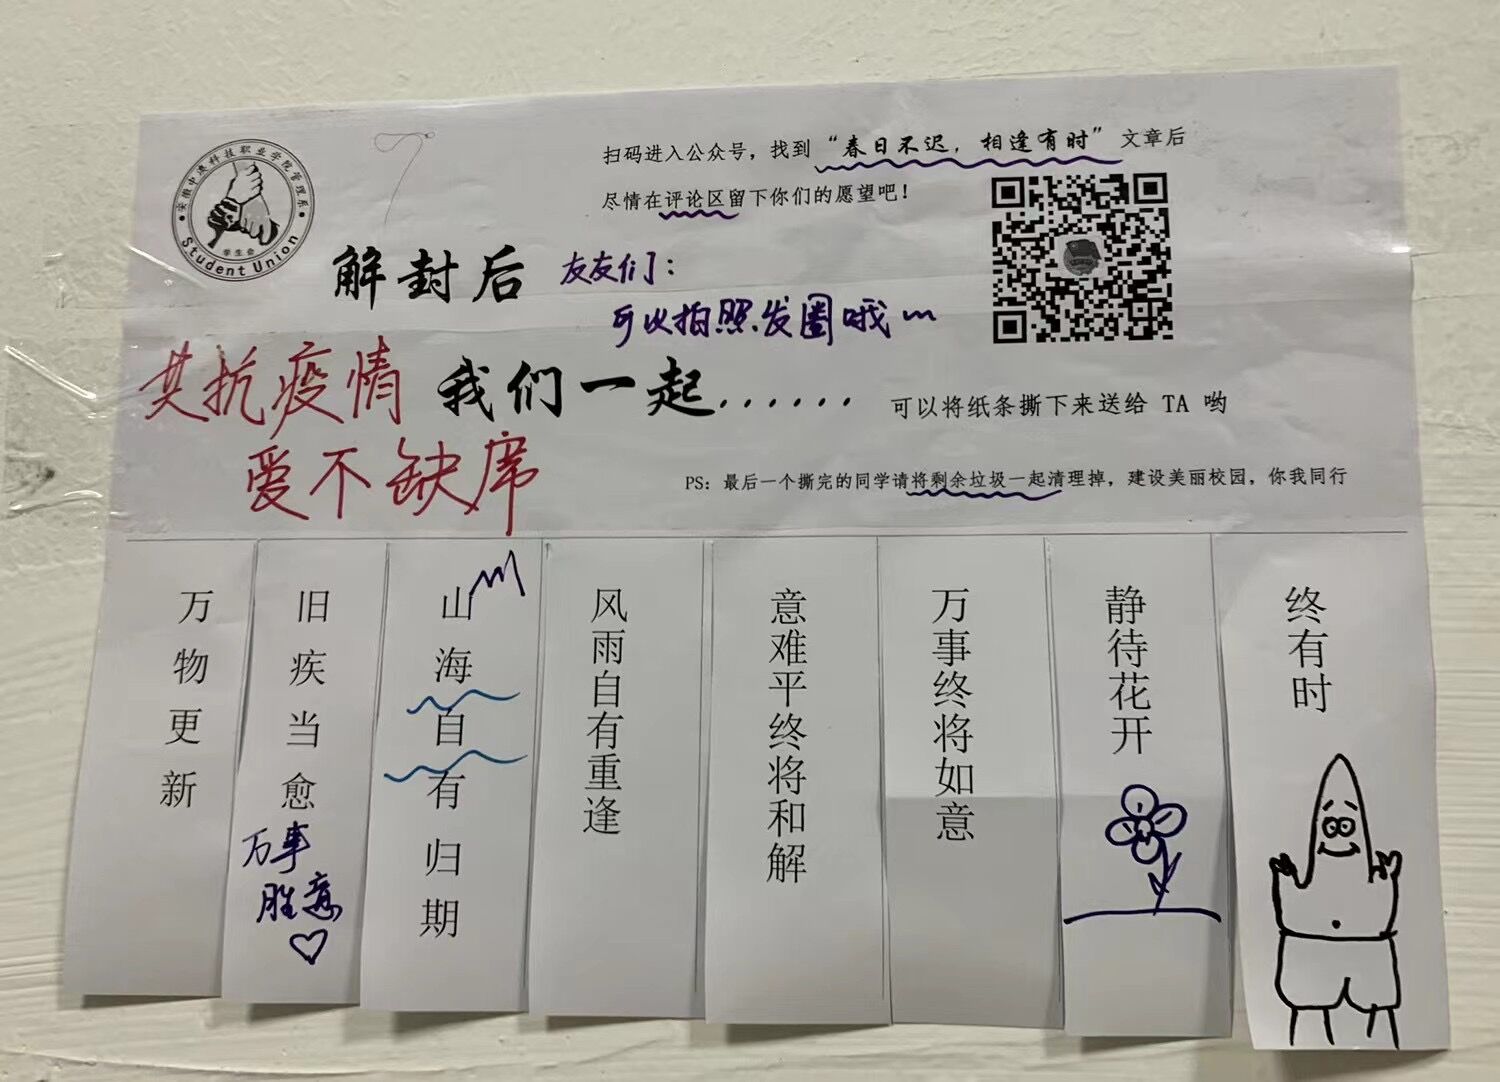 安徽中澳科技职业学院管理系
学生会
Student Union
扫码进入公众号，找到“春日不迟，相逢有时”文章后
尽情在评论区留下你们的愿望吧！
解封后
友友们：
可以拍照发圈哦
共抗疫情
我们一起......
可以将纸条撕下来送给 TA 哟
爱不缺席
PS：最后一个撕完的同学请将剩余垃圾一起清理掉，建设美丽校园，你我同行
万物更新
旧疾当愈
万事
胜意
山海自有归期
风雨自有重逢
意难平终将和解
万事终将如意
静待花开
终有时